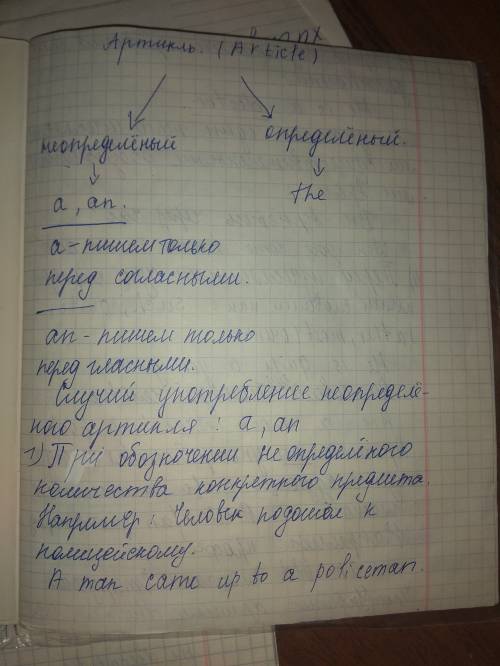 Артикль. (Article)
неопределёный определёный.
a, an. the
a - пишем только
перед согласными.
an - пишем только
перед гласными.
Случий употребление неопределё-
ного артикля : a, an
1) При обозночении неопределёного
количества конкретного предмета.
Например: Человек подошол к
полицейскому.
A man came up to a policeman.